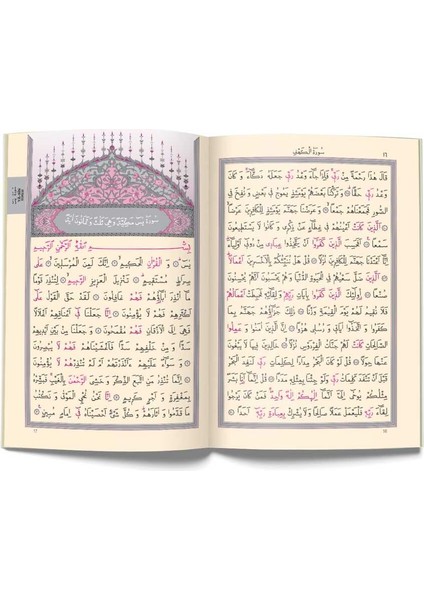 سُورَةُ الْكَهْفِ
قَالَ هٰذَا رَحْمَةٌ مِنْ رَبّ۪ي فَاِذَا جَٓاءَ وَعْدُ رَبّ۪ي جَعَلَهُ دَكَّٓاءَ وَكَانَ
وَعْدُ رَبّ۪ي حَقًّا ۞ وَتَرَكْنَا بَعْضَهُمْ يَوْمَئِذٍ يَمُوجُ ف۪ي بَعْضٍ وَنُفِخَ فِي
الصُّورِ فَجَمَعْنَاهُمْ جَمْعًا ۞ وَعَرَضْنَا جَهَنَّمَ يَوْمَئِذٍ لِلْكَافِر۪ينَ عَرْضًا ۞
اَلَّذ۪ينَ كَانَتْ اَعْيُنُهُمْ ف۪ي غِطَٓاءٍ عَنْ ذِكْر۪ي وَكَانُوا لَا يَسْتَط۪يعُونَ
سَمْعًا ۞ اَفَحَسِبَ الَّذ۪ينَ كَفَرُٓوا اَنْ يَتَّخِذُوا عِبَاد۪ي مِنْ دُون۪ٓي اَوْلِيَٓاءَ
اِنَّٓا اَعْتَدْنَا جَهَنَّمَ لِلْكَافِر۪ينَ نُزُلًا ۞ قُلْ هَلْ نُنَبِّئُكُمْ بِالْاَخْسَر۪ينَ اَعْمَالًا ۞
اَلَّذ۪ينَ ضَلَّ سَعْيُهُمْ فِي الْحَيٰوةِ الدُّنْيَا وَهُمْ يَحْسَبُونَ اَنَّهُمْ يُحْسِنُونَ
صُنْعًا ۞ اُو۬لٰٓئِكَ الَّذ۪ينَ كَفَرُوا بِاٰيَاتِ رَبِّهِمْ وَلِقَٓائِه۪ فَحَبِطَتْ اَعْمَالُهُمْ
فَلَا نُق۪يمُ لَهُمْ يَوْمَ الْقِيٰمَةِ وَزْنًا ۞ ذٰلِكَ جَزَٓاؤُ۬هُمْ جَهَنَّمُ بِمَا
كَفَرُوا وَاتَّخَذُٓوا اٰيَات۪ي وَرُسُل۪ي هُزُوًا ۞ اِنَّ الَّذ۪ينَ اٰمَنُوا وَعَمِلُوا
الصَّالِحَاتِ كَانَتْ لَهُمْ جَنَّاتُ الْفِرْدَوْسِ نُزُلًا ۞ خَالِد۪ينَ ف۪يهَا لَا يَبْغُونَ
عَنْهَا حِوَلًا ۞ قُلْ لَوْ كَانَ الْبَحْرُ مِدَادًا لِكَلِمَاتِ رَبّ۪ي لَنَفِدَ الْبَحْرُ
قَبْلَ اَنْ تَنْفَدَ كَلِمَاتُ رَبّ۪ي وَلَوْ جِئْنَا بِمِثْلِه۪ مَدَدًا ۞ قُلْ اِنَّمَٓا اَنَا۬ بَشَرٌ
مِثْلُكُمْ يُوحٰٓى اِلَيَّ اَنَّمَٓا اِلٰهُكُمْ اِلٰهٌ وَاحِدٌ فَمَنْ كَانَ يَرْجُوا لِقَٓاءَ
رَبِّه۪ فَلْيَعْمَلْ عَمَلًا صَالِحًا وَلَا يُشْرِكْ بِعِبَادَةِ رَبِّه۪ٓ اَحَدًا ۞
16
سُورَةُ يٰسٓ مَكِّيَّةٌ وَهِيَ ثَلٰثٌ وَثَمَانُونَ اٰيَةً
بِسْمِ اللّٰهِ الرَّحْمٰنِ الرَّح۪يمِ
يٰسٓ ۞ وَالْقُرْاٰنِ الْحَك۪يمِ ۞ اِنَّكَ لَمِنَ الْمُرْسَل۪ينَ ۞ عَلٰى
صِرَاطٍ مُسْتَق۪يمٍ ۞ تَنْز۪يلَ الْعَز۪يزِ الرَّح۪يمِ ۞ لِتُنْذِرَ قَوْمًا
مَٓا اُنْذِرَ اٰبَٓاؤُ۬هُمْ فَهُمْ غَافِلُونَ ۞ لَقَدْ حَقَّ الْقَوْلُ عَلٰٓى
اَكْثَرِهِمْ فَهُمْ لَا يُؤْمِنُونَ ۞ اِنَّا جَعَلْنَا ف۪ٓي اَعْنَاقِهِمْ اَغْلَالًا
فَهِيَ اِلَى الْاَذْقَانِ فَهُمْ مُقْمَحُونَ ۞ وَجَعَلْنَا مِنْ بَيْنِ اَيْد۪يهِمْ
سَدًّا وَمِنْ خَلْفِهِمْ سَدًّا فَاَغْشَيْنَاهُمْ فَهُمْ لَا يُبْصِرُونَ
۞ وَسَوَٓاءٌ عَلَيْهِمْ ءَاَنْذَرْتَهُمْ اَمْ لَمْ تُنْذِرْهُمْ لَا يُؤْمِنُونَ ۞
اِنَّمَا تُنْذِرُ مَنِ اتَّبَعَ الذِّكْرَ وَخَشِيَ الرَّحْمٰنَ بِالْغَيْبِ فَبَشِّرْهُ
بِمَغْفِرَةٍ وَاَجْرٍ كَر۪يمٍ ۞ اِنَّا نَحْنُ نُحْيِ الْمَوْتٰى وَنَكْتُبُ
مَا قَدَّمُوا وَاٰثَارَهُمْ وَكُلَّ شَيْءٍ اَحْصَيْنَاهُ ف۪ٓي اِمَامٍ مُب۪ينٍ ۞
17